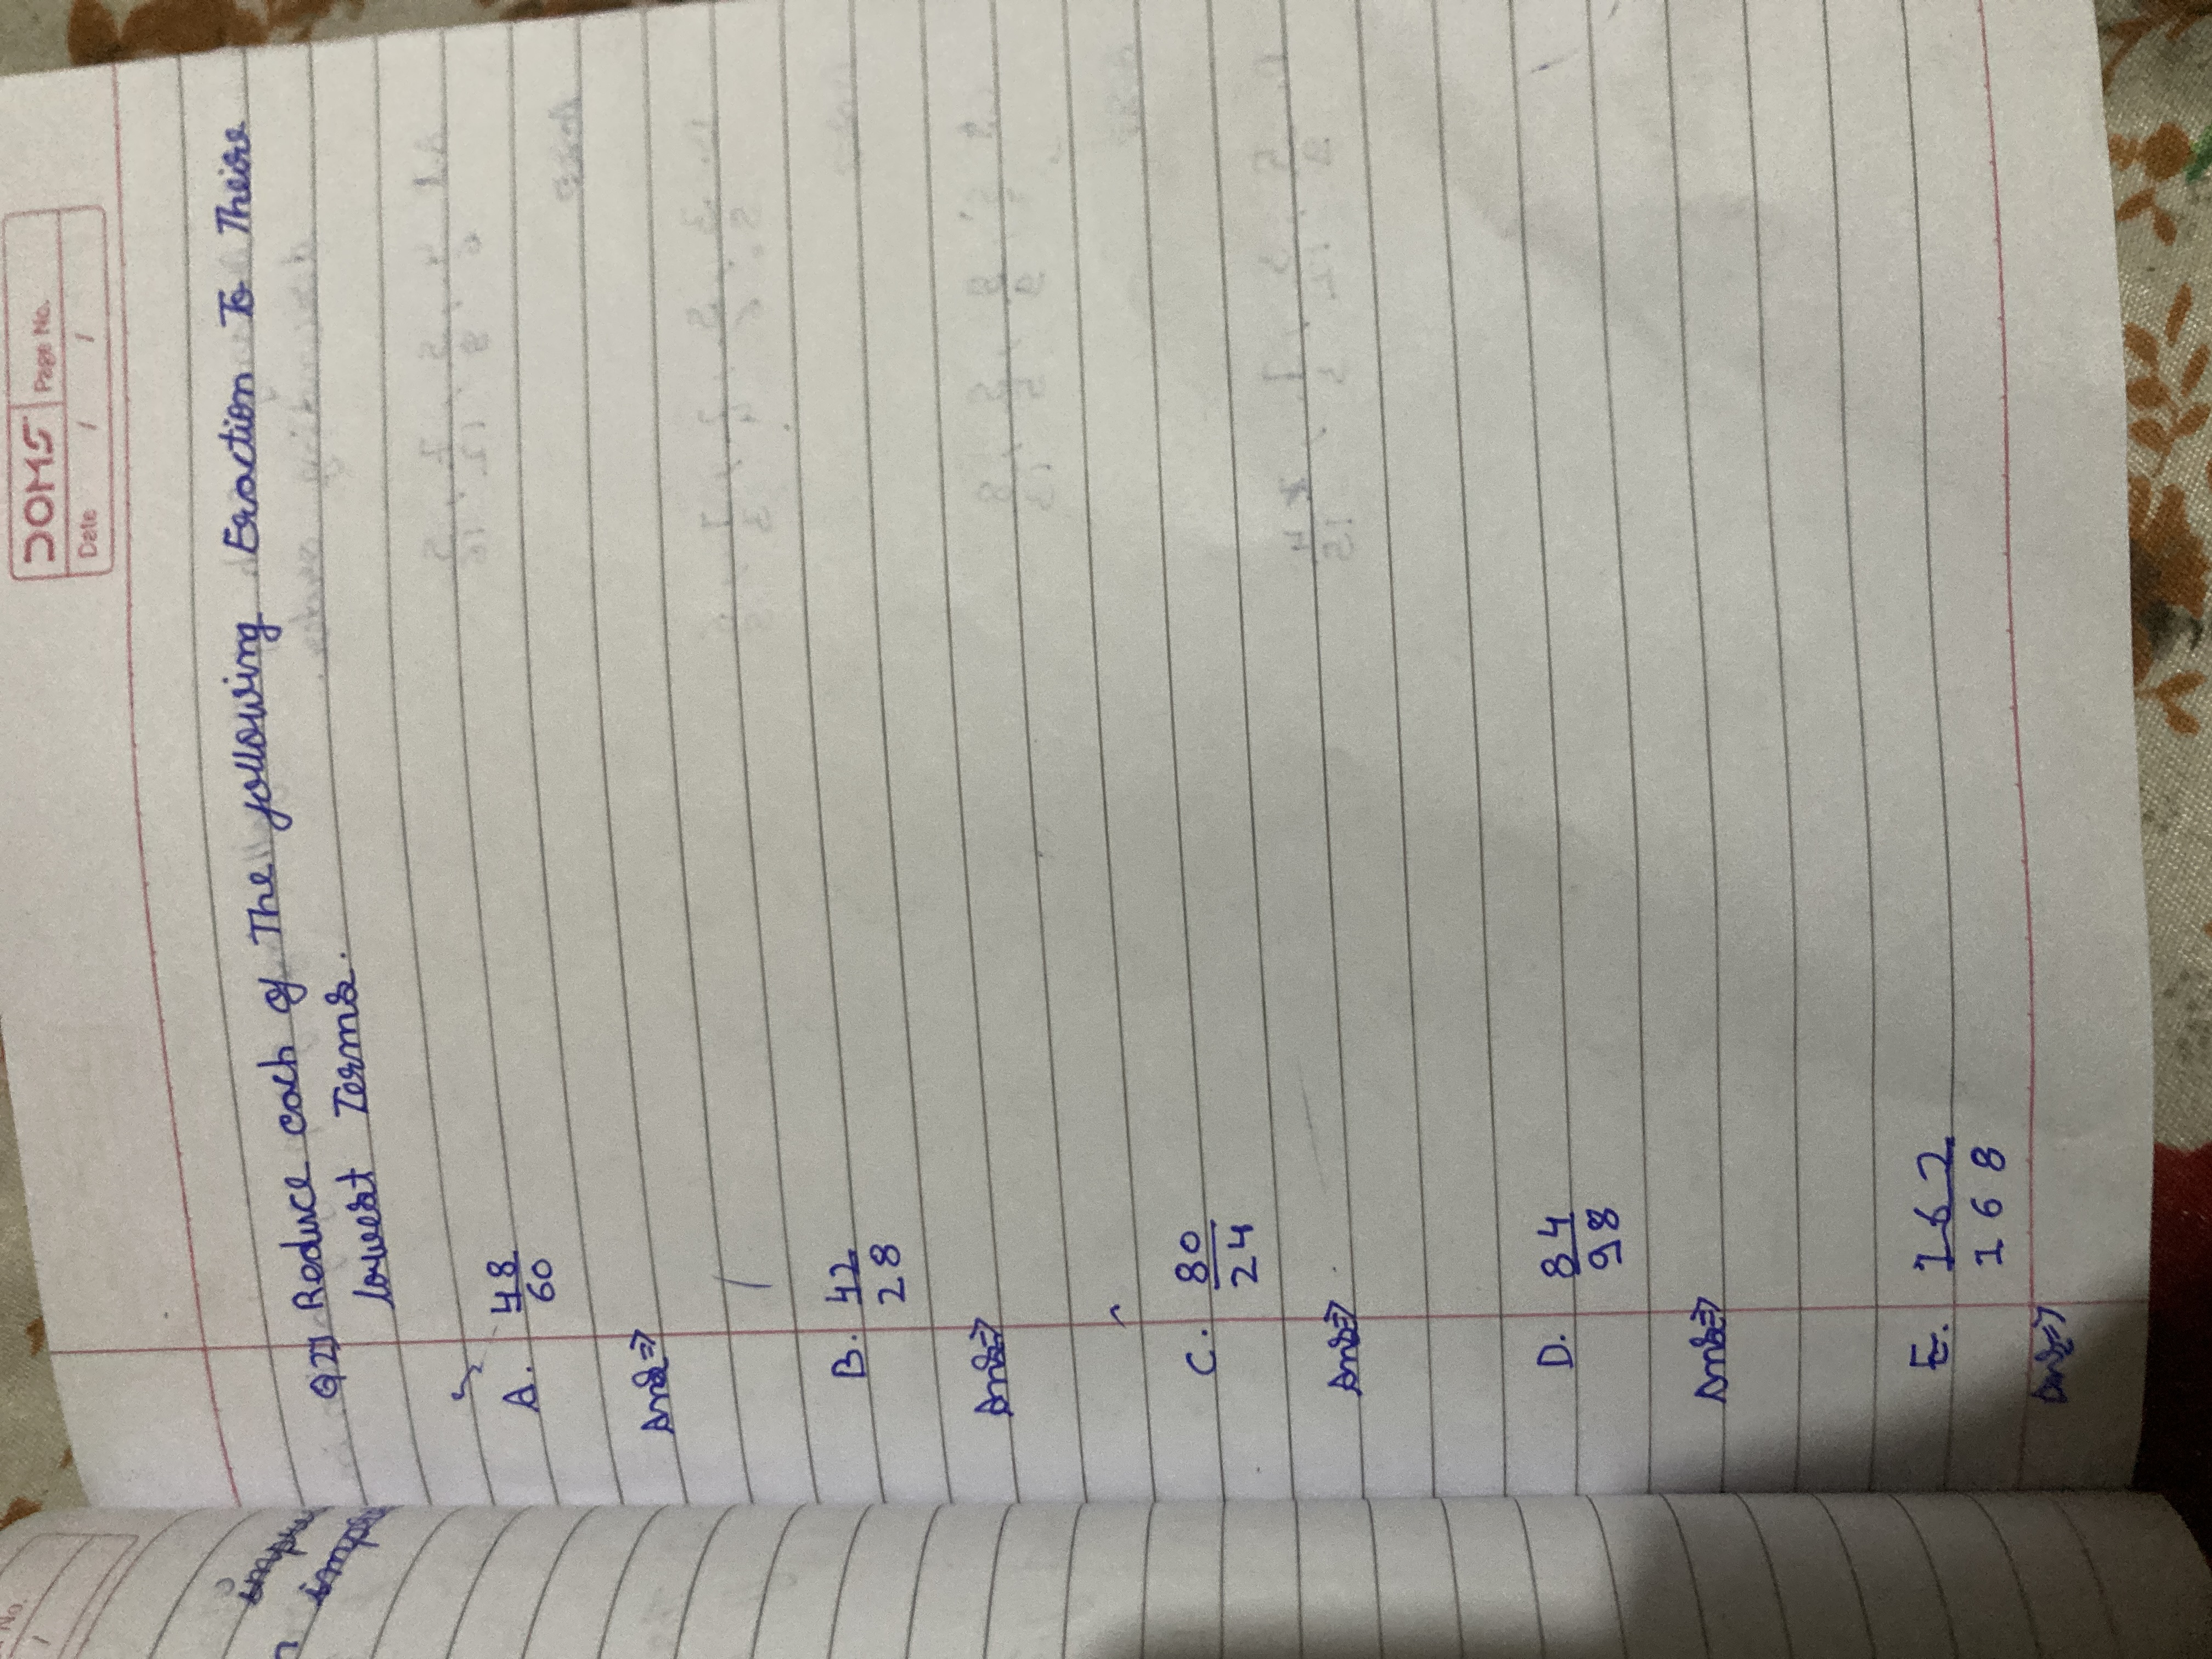 DOMS Page No.
Date / /
Q2) Reduce each of The following Fraction To Their
lowest Terms.
A. 48/60
Ans⇒
B. 42/28
Ans⇒
C. 80/24
Ans⇒
D. 84/98
Ans⇒
E. 162/168
Ans⇒
No.